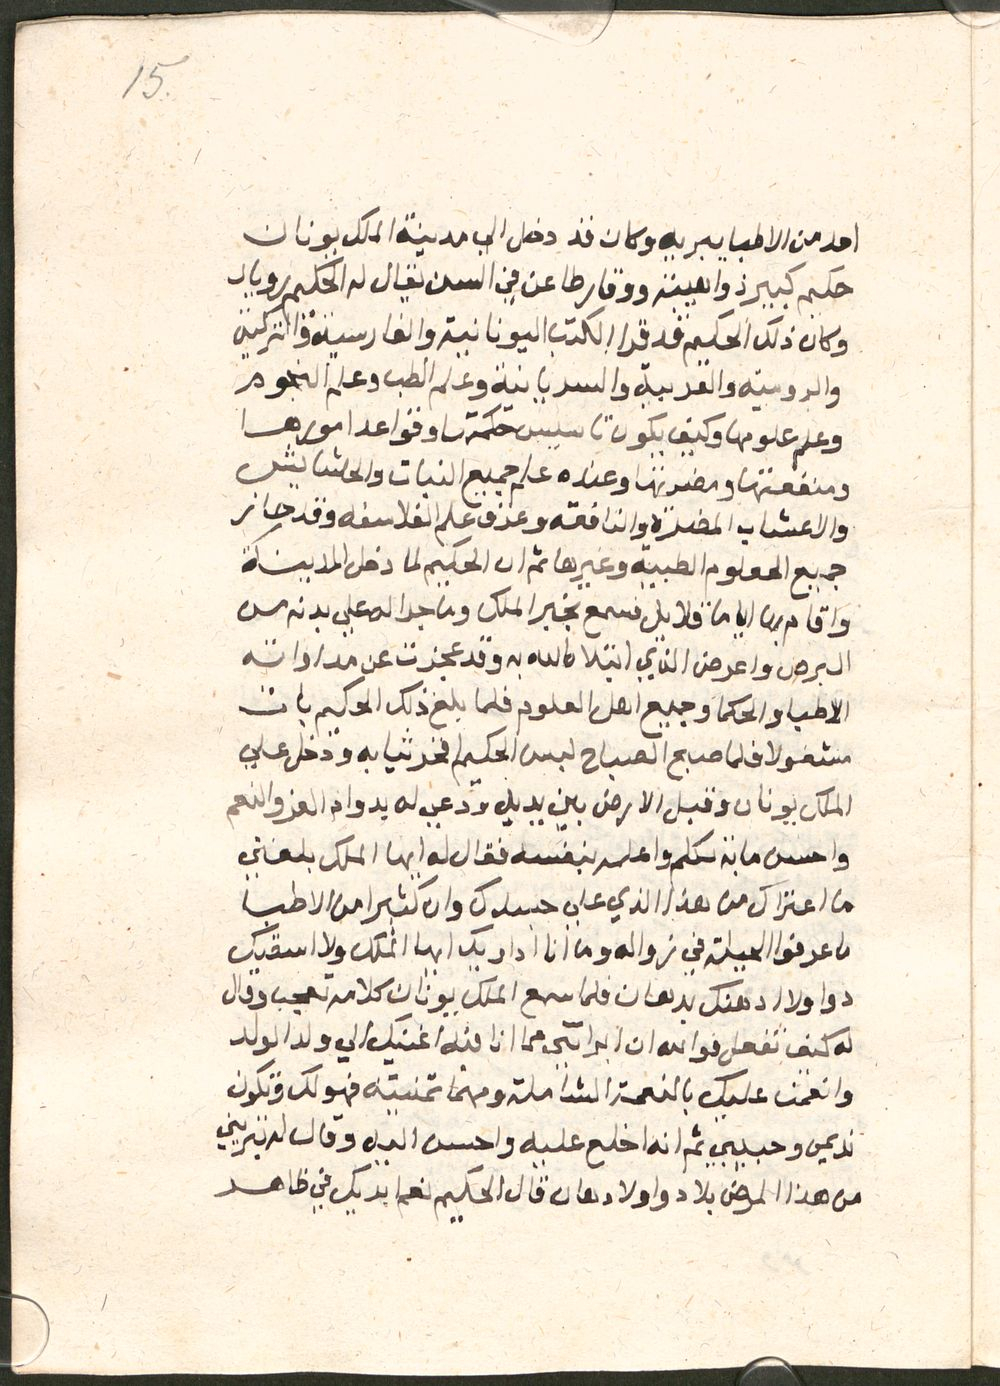 15.
احد من الاطبا يبريه وكان قد دخل الي مدينة الملك يونان
حكيم كبير ذو اهيبته ووقار طاعن في السن يقال له الحكيم رويان
وكان ذلك الحكيم قد قرا الكتب اليونانية والفارسية والتركية
والروميه والعربية والسريانية وعلم الطب وعلم النجوم
وعلم علومها وكيف يكون تاسيس حكمتها وقواعد امورها
ومنفعتها ومضرتها وعنده علم جميع النبات والحشايش
والاعشاب المضرة والنافعه وعرف علم الفلاسفه وقد حاز
جميع العلوم الطبية وغيرها ثم ان الحكيم لما دخل المدينة
واقام بها اياما قلايل فسمع بخبر الملك وما جرا له علي بدنه من
البرص واعرض الذي ابتلاه الله به وقد عجزت عن مداواته
الاطبا والحكما وجميع اهل العلوم فلما بلغ ذلك الحكيم بات
مشغولا فلما صبح الصباح لبس الحكيم افخر ثيابه ودخل علي
الملك يونان وقبل الارض بين يديه ودعي له بدوام العز والنعم
واحسن ما به تكلم واعلمه بنفسه فقال له ايها الملك بلغني
ما اعتراك من هذا الذي علي جسدك وان كثيرا من الاطبا
ما عرفوا الحيلة في زواله وما انا اداويك ايها الملك ولا اسقيك
دوا ولا ادهنك بدهان فلما سمع الملك يونان كلامه تعجب وقال
له كيف تفعل فوالله ان ابراتني مما انا فيه اغنيك الي ولد الولد
وانعمت عليك بالنعمة الشاملة ومهما تمنيته فهو لك وتكون
نديمي وحبيبي ثم انه اخلع عليه واحسن اليه وقال له تبريني
من هذا المرض بلا دوا ولا دهان قال الحكيم نعم ابريك في ظاهر